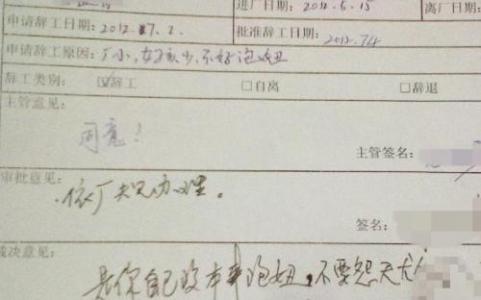 进厂日期:2012.5.15 离厂日期:
申请辞工日期:2012.07.2. 批准辞工日期:2012.7.4
申请辞工原因:厂小,女孩少,不好泡妞
辞工类别: ☑辞工 □自离 □辞退
主管意见:
同意!
主管签名:
审批意见:
依厂规办理。
签名:
裁决意见:
是你自己没本事泡妞,不要怨天尤人